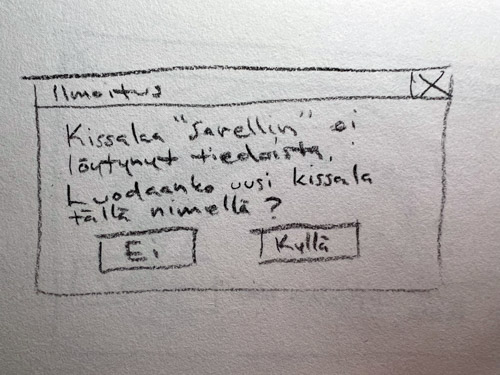 Ilmoitus X
Kissalaa "Sarellin" ei
löytynyt tiedoista.
Luodaanko uusi kissala
tällä nimellä?
Ei Kyllä